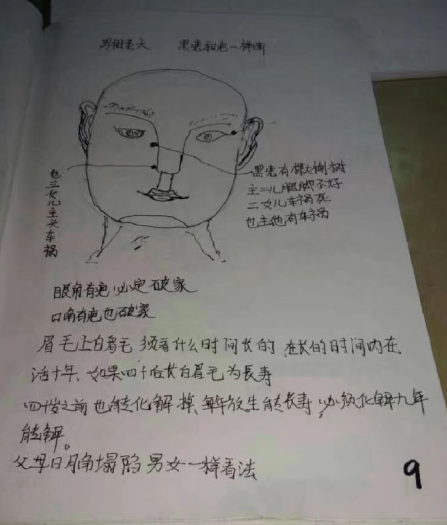 男相是大 黑痣和疤一样断
黑痣有棵大榭树
主二儿腿脚不好
二女儿车祸死
也主他有车祸
也主女儿主夫车祸
眼角有疤必定破家
口角有疤也破家
眉毛上白眉毛，须看什么时间长的，在长的时间内在
活十年，如果四十后长白眉毛为长寿
四十岁之前也能化解掉，解放生能长寿，必须化解九年
能解。
父母日月角塌陷男女一样看法
9